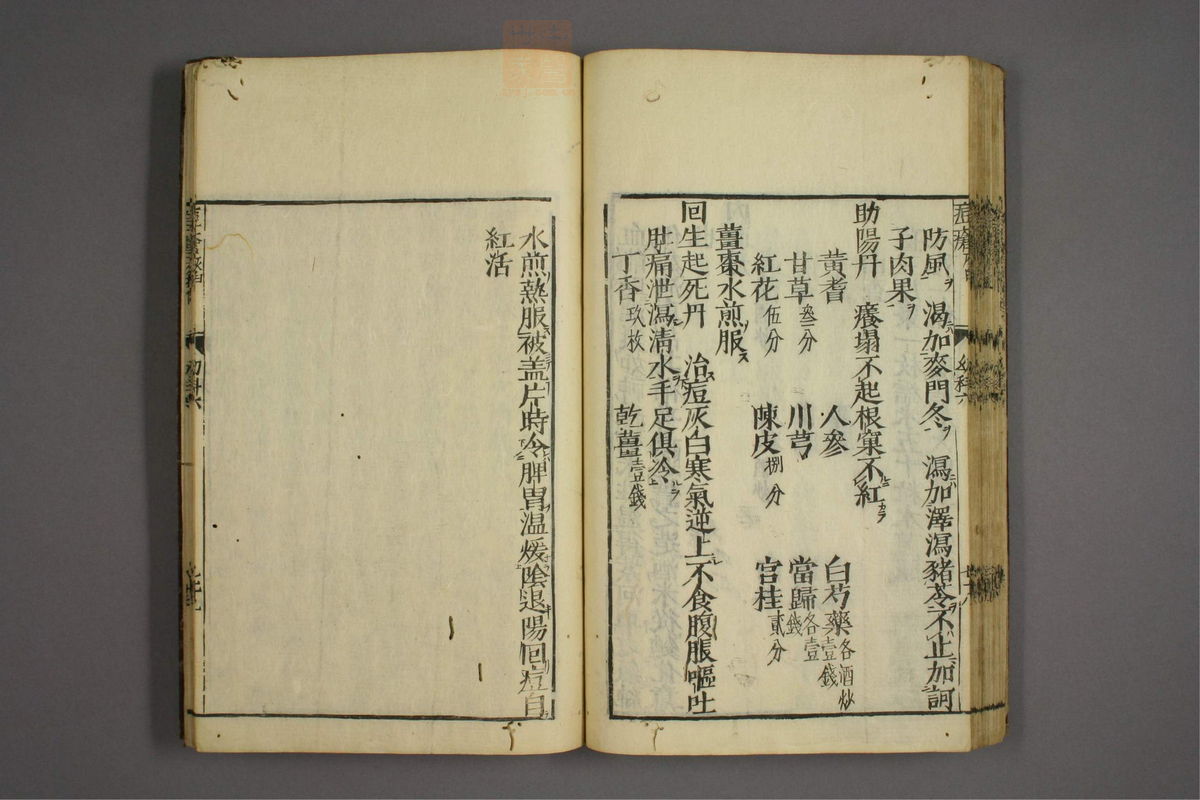 防風ヲ 渴加麥門冬ヲ 瀉加澤瀉豬苓不止加訶
子肉果ヲ
助陽丹 癢塌不起根窠不紅
黄耆 人參 白芍藥各酒炒壹錢
甘草叁分 川芎 當歸各壹錢
紅花伍分 陳皮捌分 官桂貳分
薑棗水煎服ス
回生起死丹 治痘灰白寒氣逆上不食腹脹嘔吐
肚痛泄瀉清水手足俱冷
丁香玖枚 乾薑壹錢
水煎熱服被盖片時令脾胃温煖陰退陽回痘自
紅活